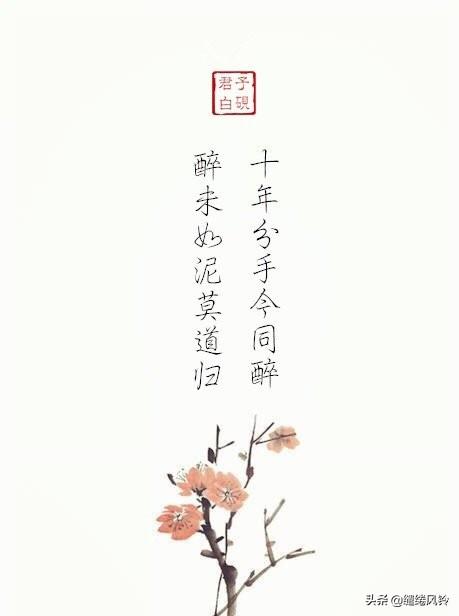 君子
白砚
十年分手今同醉
醉未如泥莫道归
头条 @缱绻风铃